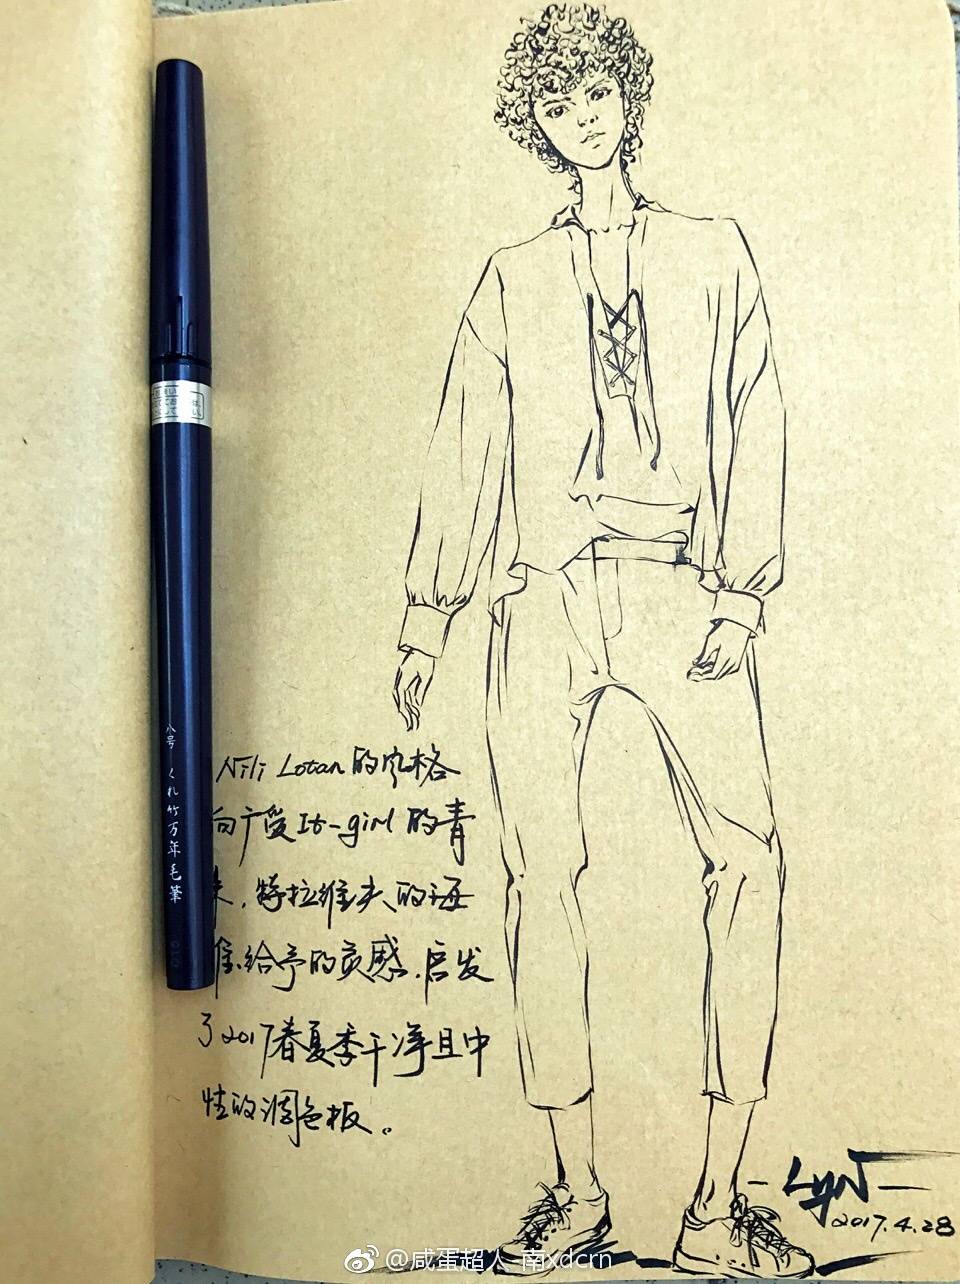 八号 くれ竹万年毛筆
Nili Lotan的风格
向广受It-girl的青
特拉维夫的海
滩给予的灵感.启发
了2017春夏季干净且中
性的调色板。
-LYN-
2017.4.28
@咸蛋超人-南xdcrn